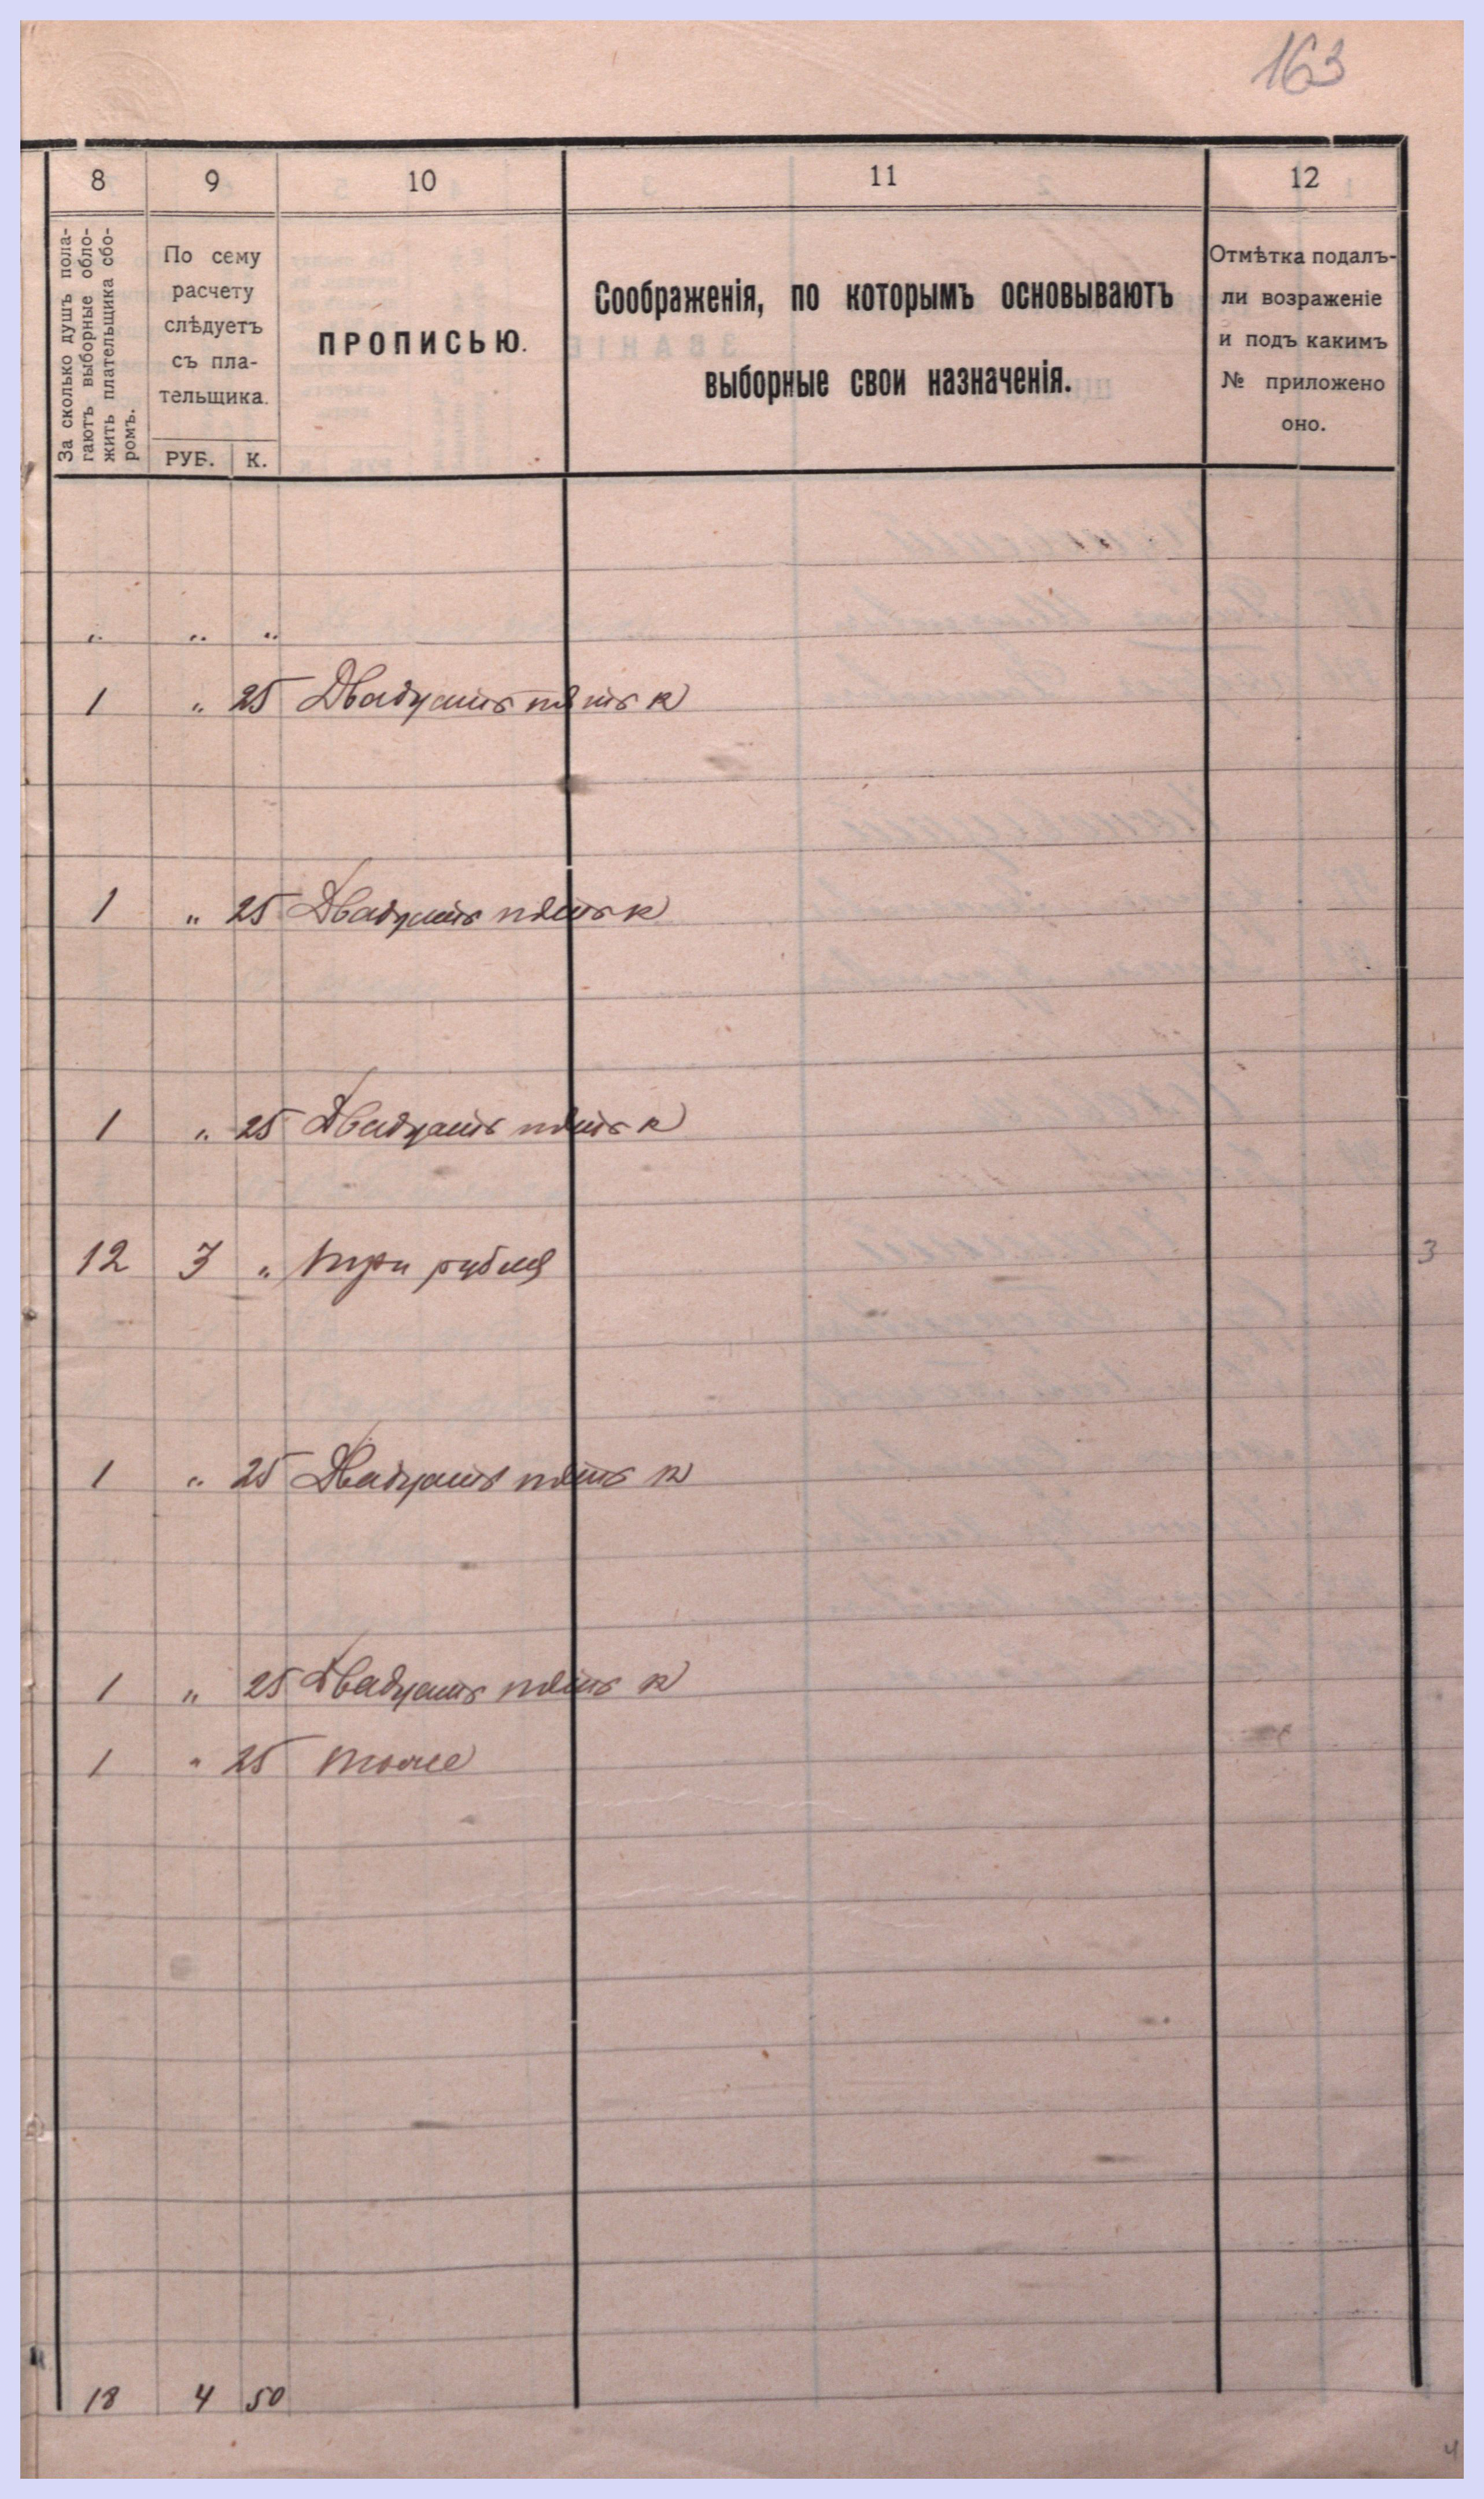 163
8 9 10 11 12
За сколько душъ пола-
гаютъ выборные обло-
жить плательщика сбо-
ромъ.
По сему
расчету
слѣдуетъ
съ пла-
тельщика.
РУБ. К.
ПРОПИСЬЮ.
Соображенія, по которымъ основываютъ
выборные свои назначенія.
Отмѣтка подалъ-
ли возраженіе
и подъ какимъ
№ приложено
оно.
" " "
1 " 25 Двадцать пять к
1 " 25 Двадцать пять к
1 " 25 Двадцать пять к
12 3 " три рубля
3
1 " 25 Двадцать пять к
1 " 25 Двадцать пять к
1 " 25 тоже
18 4 50
4